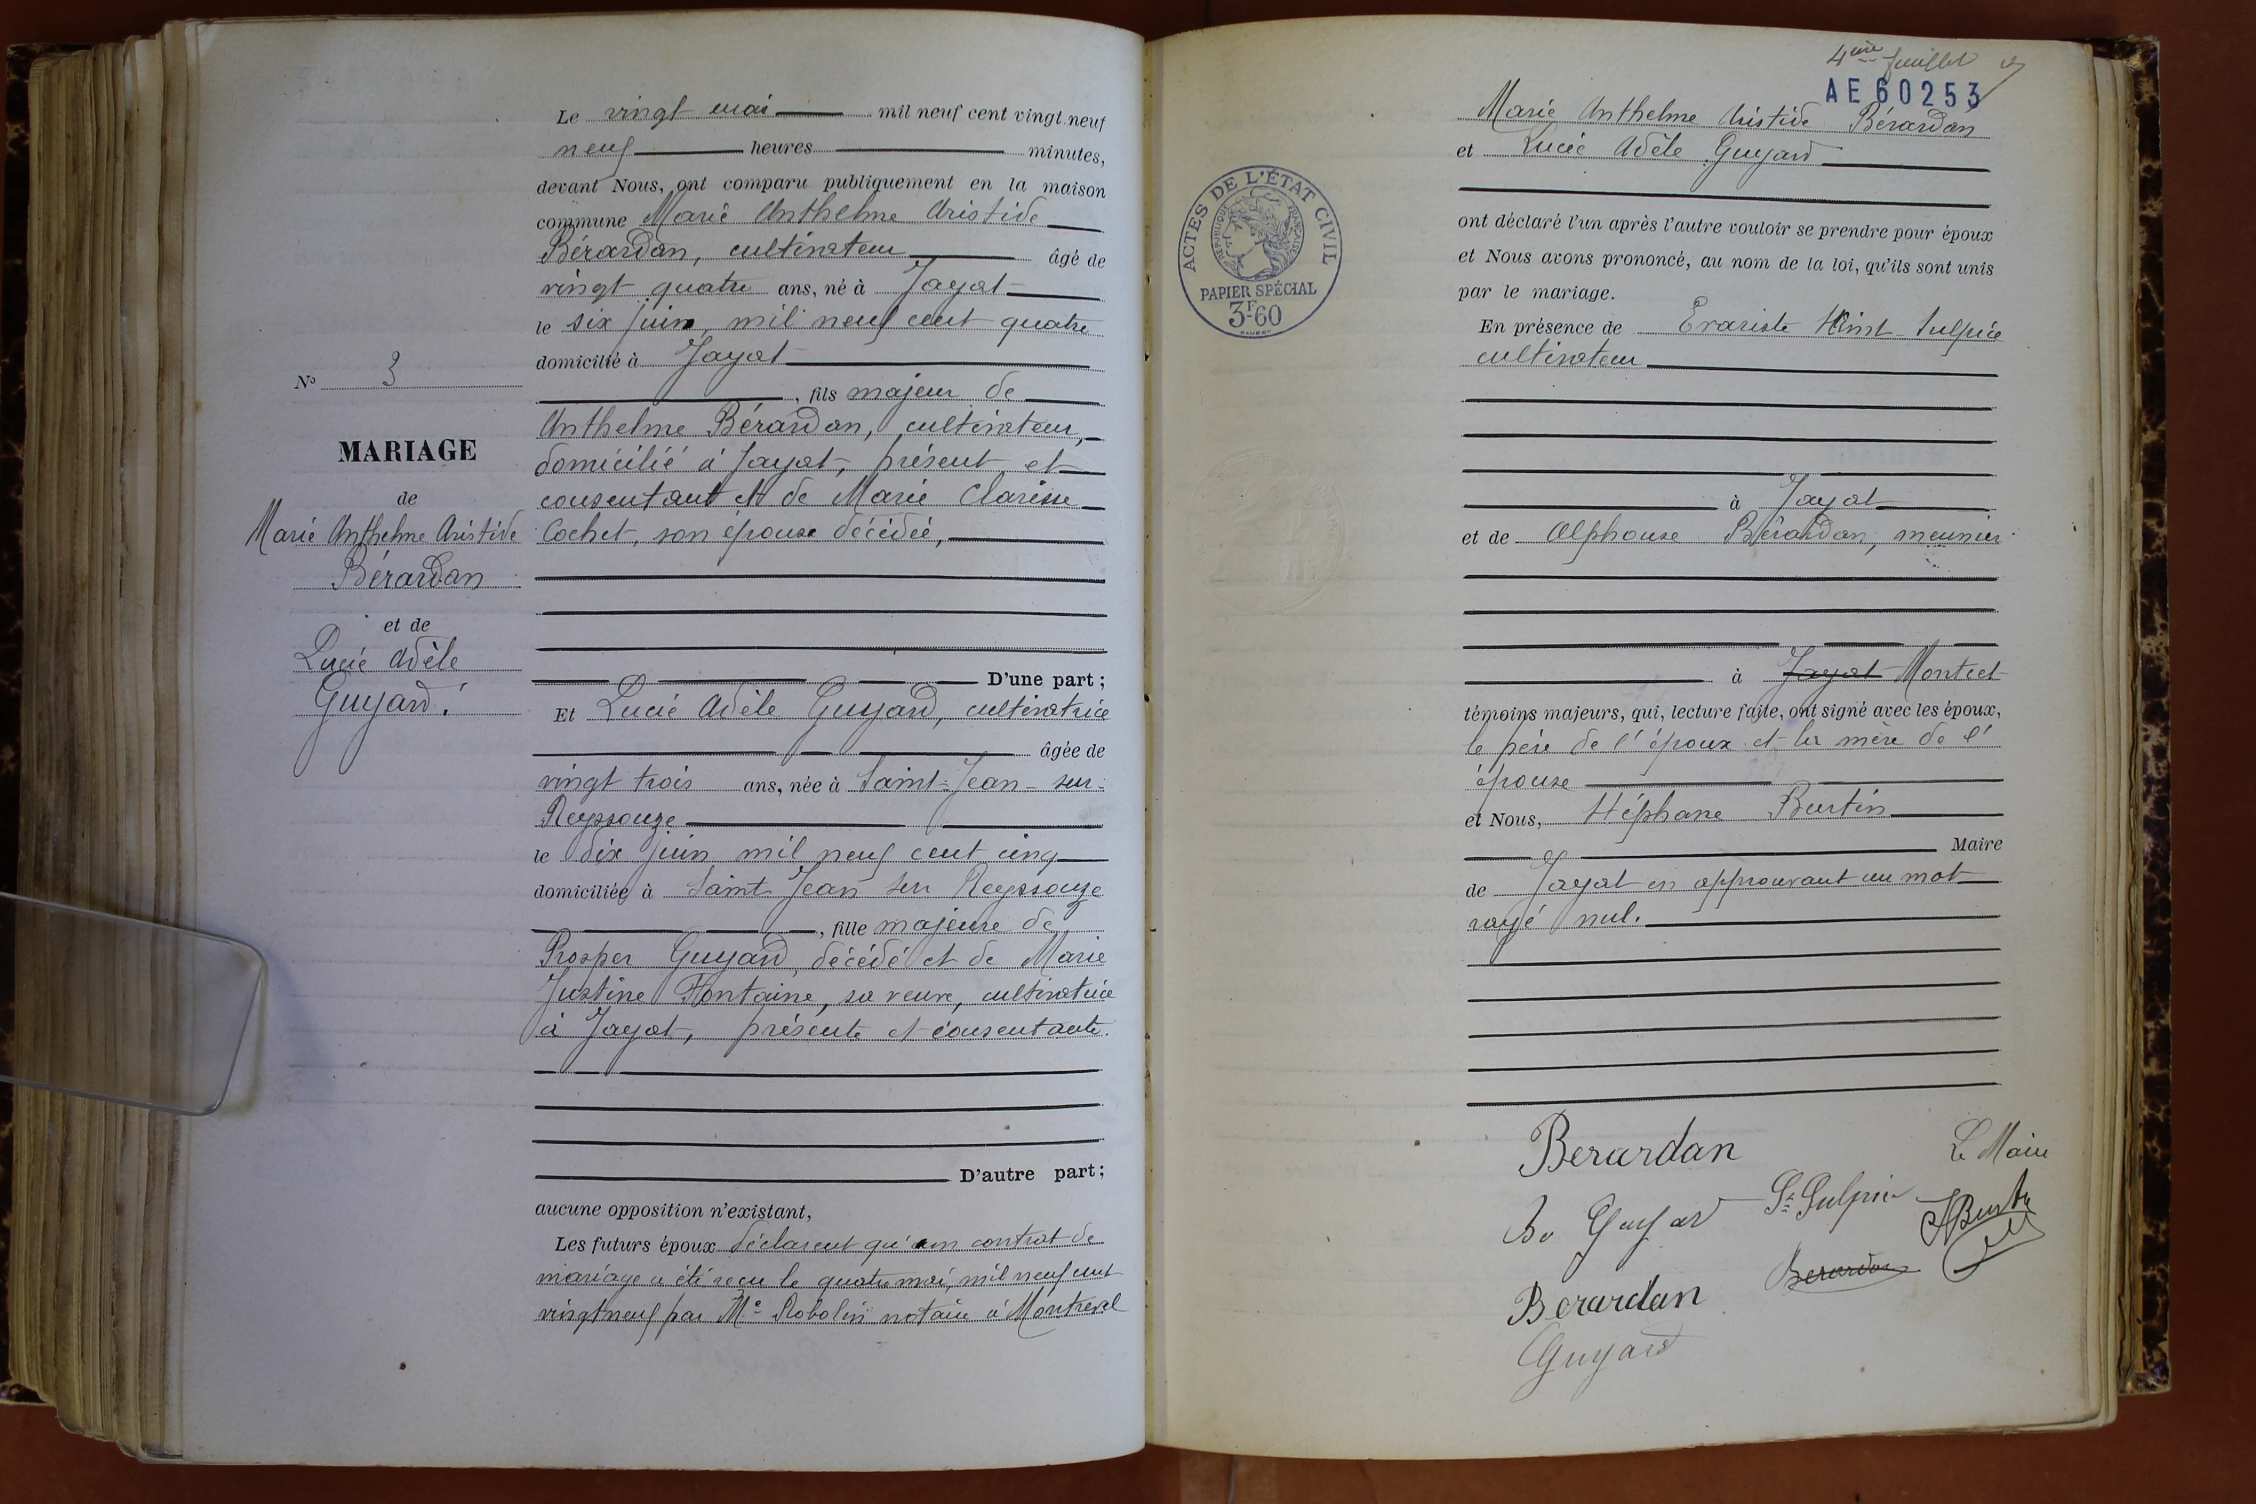 N° 3
MARIAGE
de
Marie Anthelme Aristide
Bérardan
et de
Lucie Adèle
Guyard.
Le vingt mai mil neuf cent vingt neuf
neuf heures minutes,
devant Nous, ont comparu publiquement en la maison
commune Marie Anthelme Aristide
Bérardan, cultivateur âgé de
vingt quatre ans, né à Jayat
le six juin, mil neuf cent quatre
domicilié à Jayat
, fils majeur de
Anthelme Bérardan, cultivateur,
domicilié à Jayat, présent et
consentant et de Marie Clarisse
Cochet, son épouse décédée,
D'une part ;
Et Lucie Adèle Guyard, cultivatrice
âgée de
vingt trois ans, née à Saint-Jean-sur-
Reyssouze
le dix juin mil neuf cent cinq
domiciliée à Saint Jean sur Reyssouze
, fille majeure de
Prosper Guyard, décédé et de Marie
Justine Fontaine, sa veuve, cultivatrice
à Jayat, présente et consentante.
D'autre part ;
aucune opposition n'existant,
Les futurs époux déclarent qu'un contrat de
mariage a été reçu le quatre mai, mil neuf cent
vingt neuf par Me Robolin notaire à Montrevel
4ème feuillet
AE 60253
Marie Anthelme Aristide Bérardan
et Lucie Adèle Guyard
ACTES DE L'ÉTAT CIVIL
RÉPUBLIQUE FRANÇAISE
PAPIER SPÉCIAL
3F60
ont déclaré l'un après l'autre vouloir se prendre pour époux
et Nous avons prononcé, au nom de la loi, qu'ils sont unis
par le mariage.
En présence de Evariste Saint-Sulpice
cultivateur
à Jayat
et de Alphonse Bérardan, meunier
à Jayat Montcet
témoins majeurs, qui, lecture faite, ont signé avec les époux,
le père de l'époux et la mère de l'
épouse
et Nous, Stéphane Burtin
Maire
de Jayat en approuvant un mot
rayé nul.
Berardan
Le Maire
Guyard
St Sulpice
SBurtin
Berardan
Berardan
Guyard